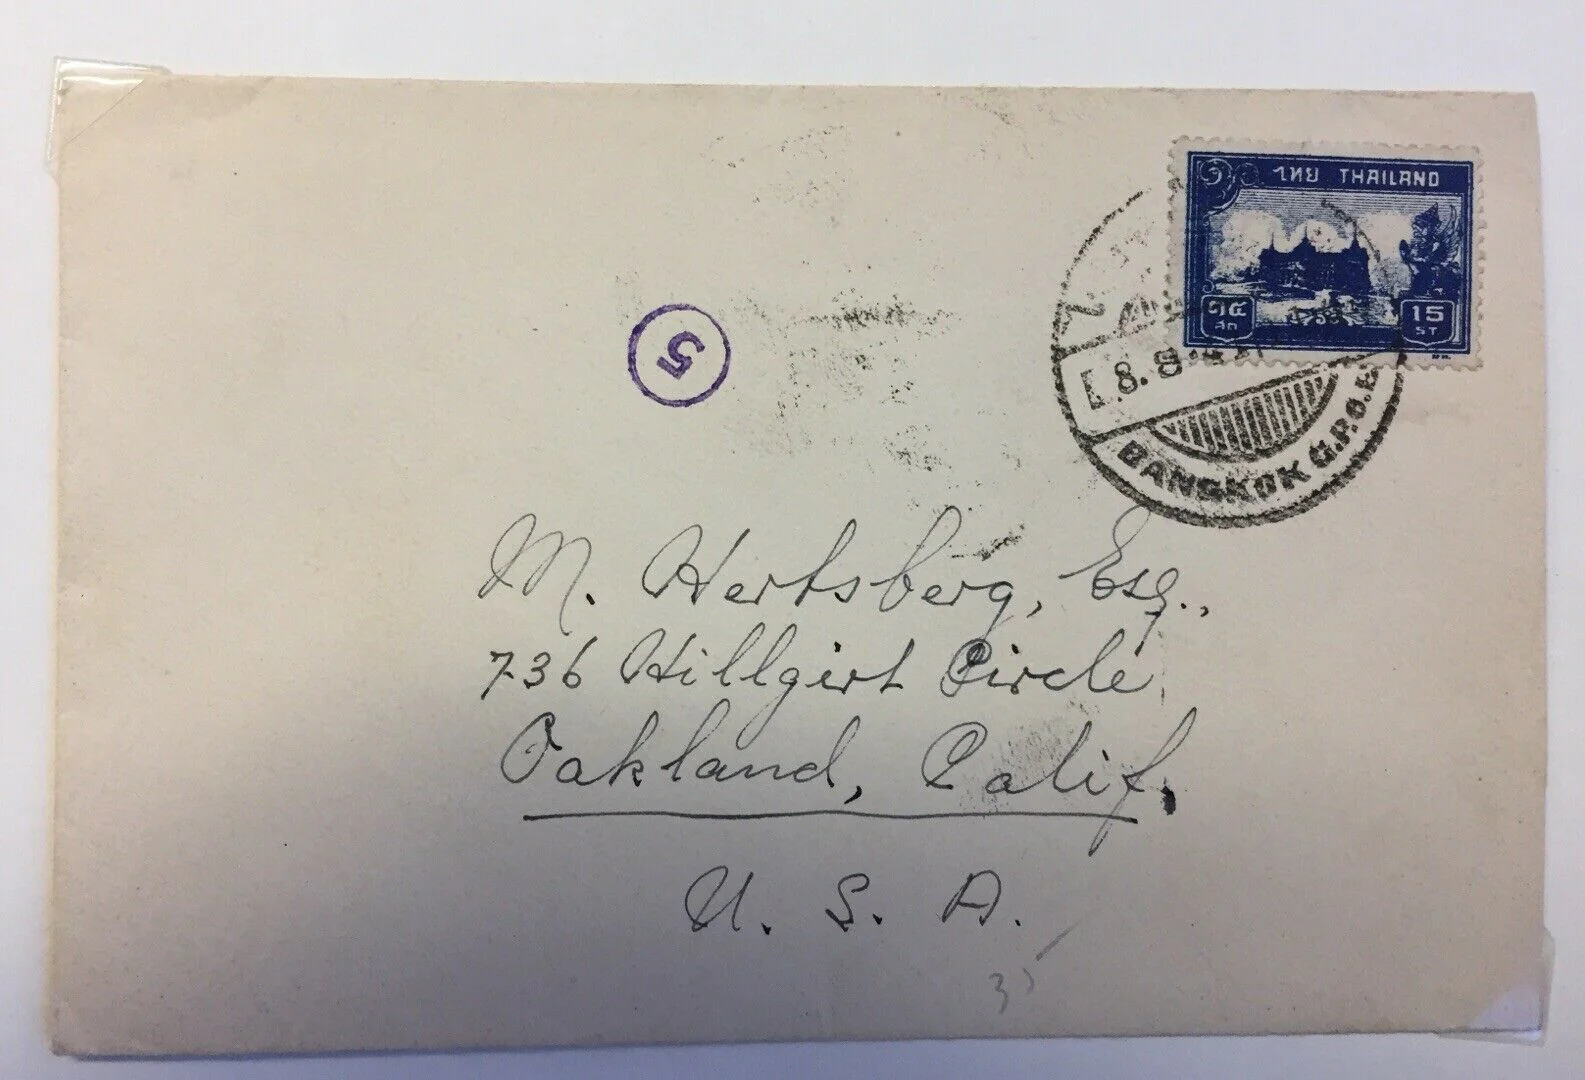 ไทย THAILAND
๑๕ สต
15 ST
8. 8.
BANGKOK G.P.O.
5
M. Hertsberg, Esq.,
736 Hillgirt Circle
Oakland, Calif.
U. S. A.